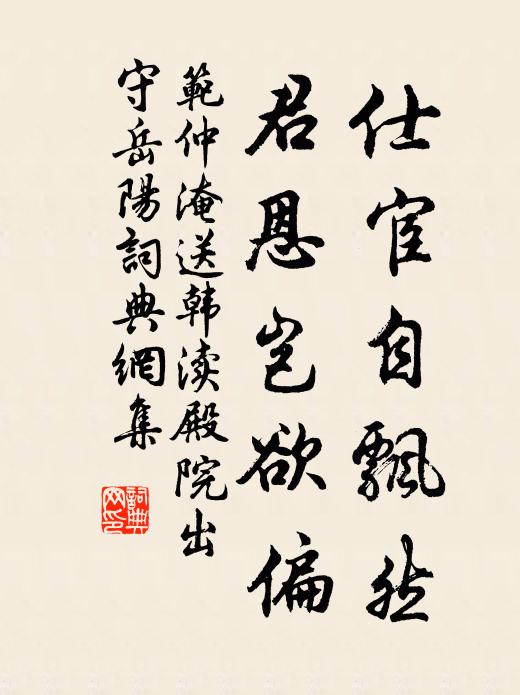 仕宦自飄然
君恩岂欲偏
範仲淹送韩渎殿院出
守岳陽詞典網集
詞典
网印